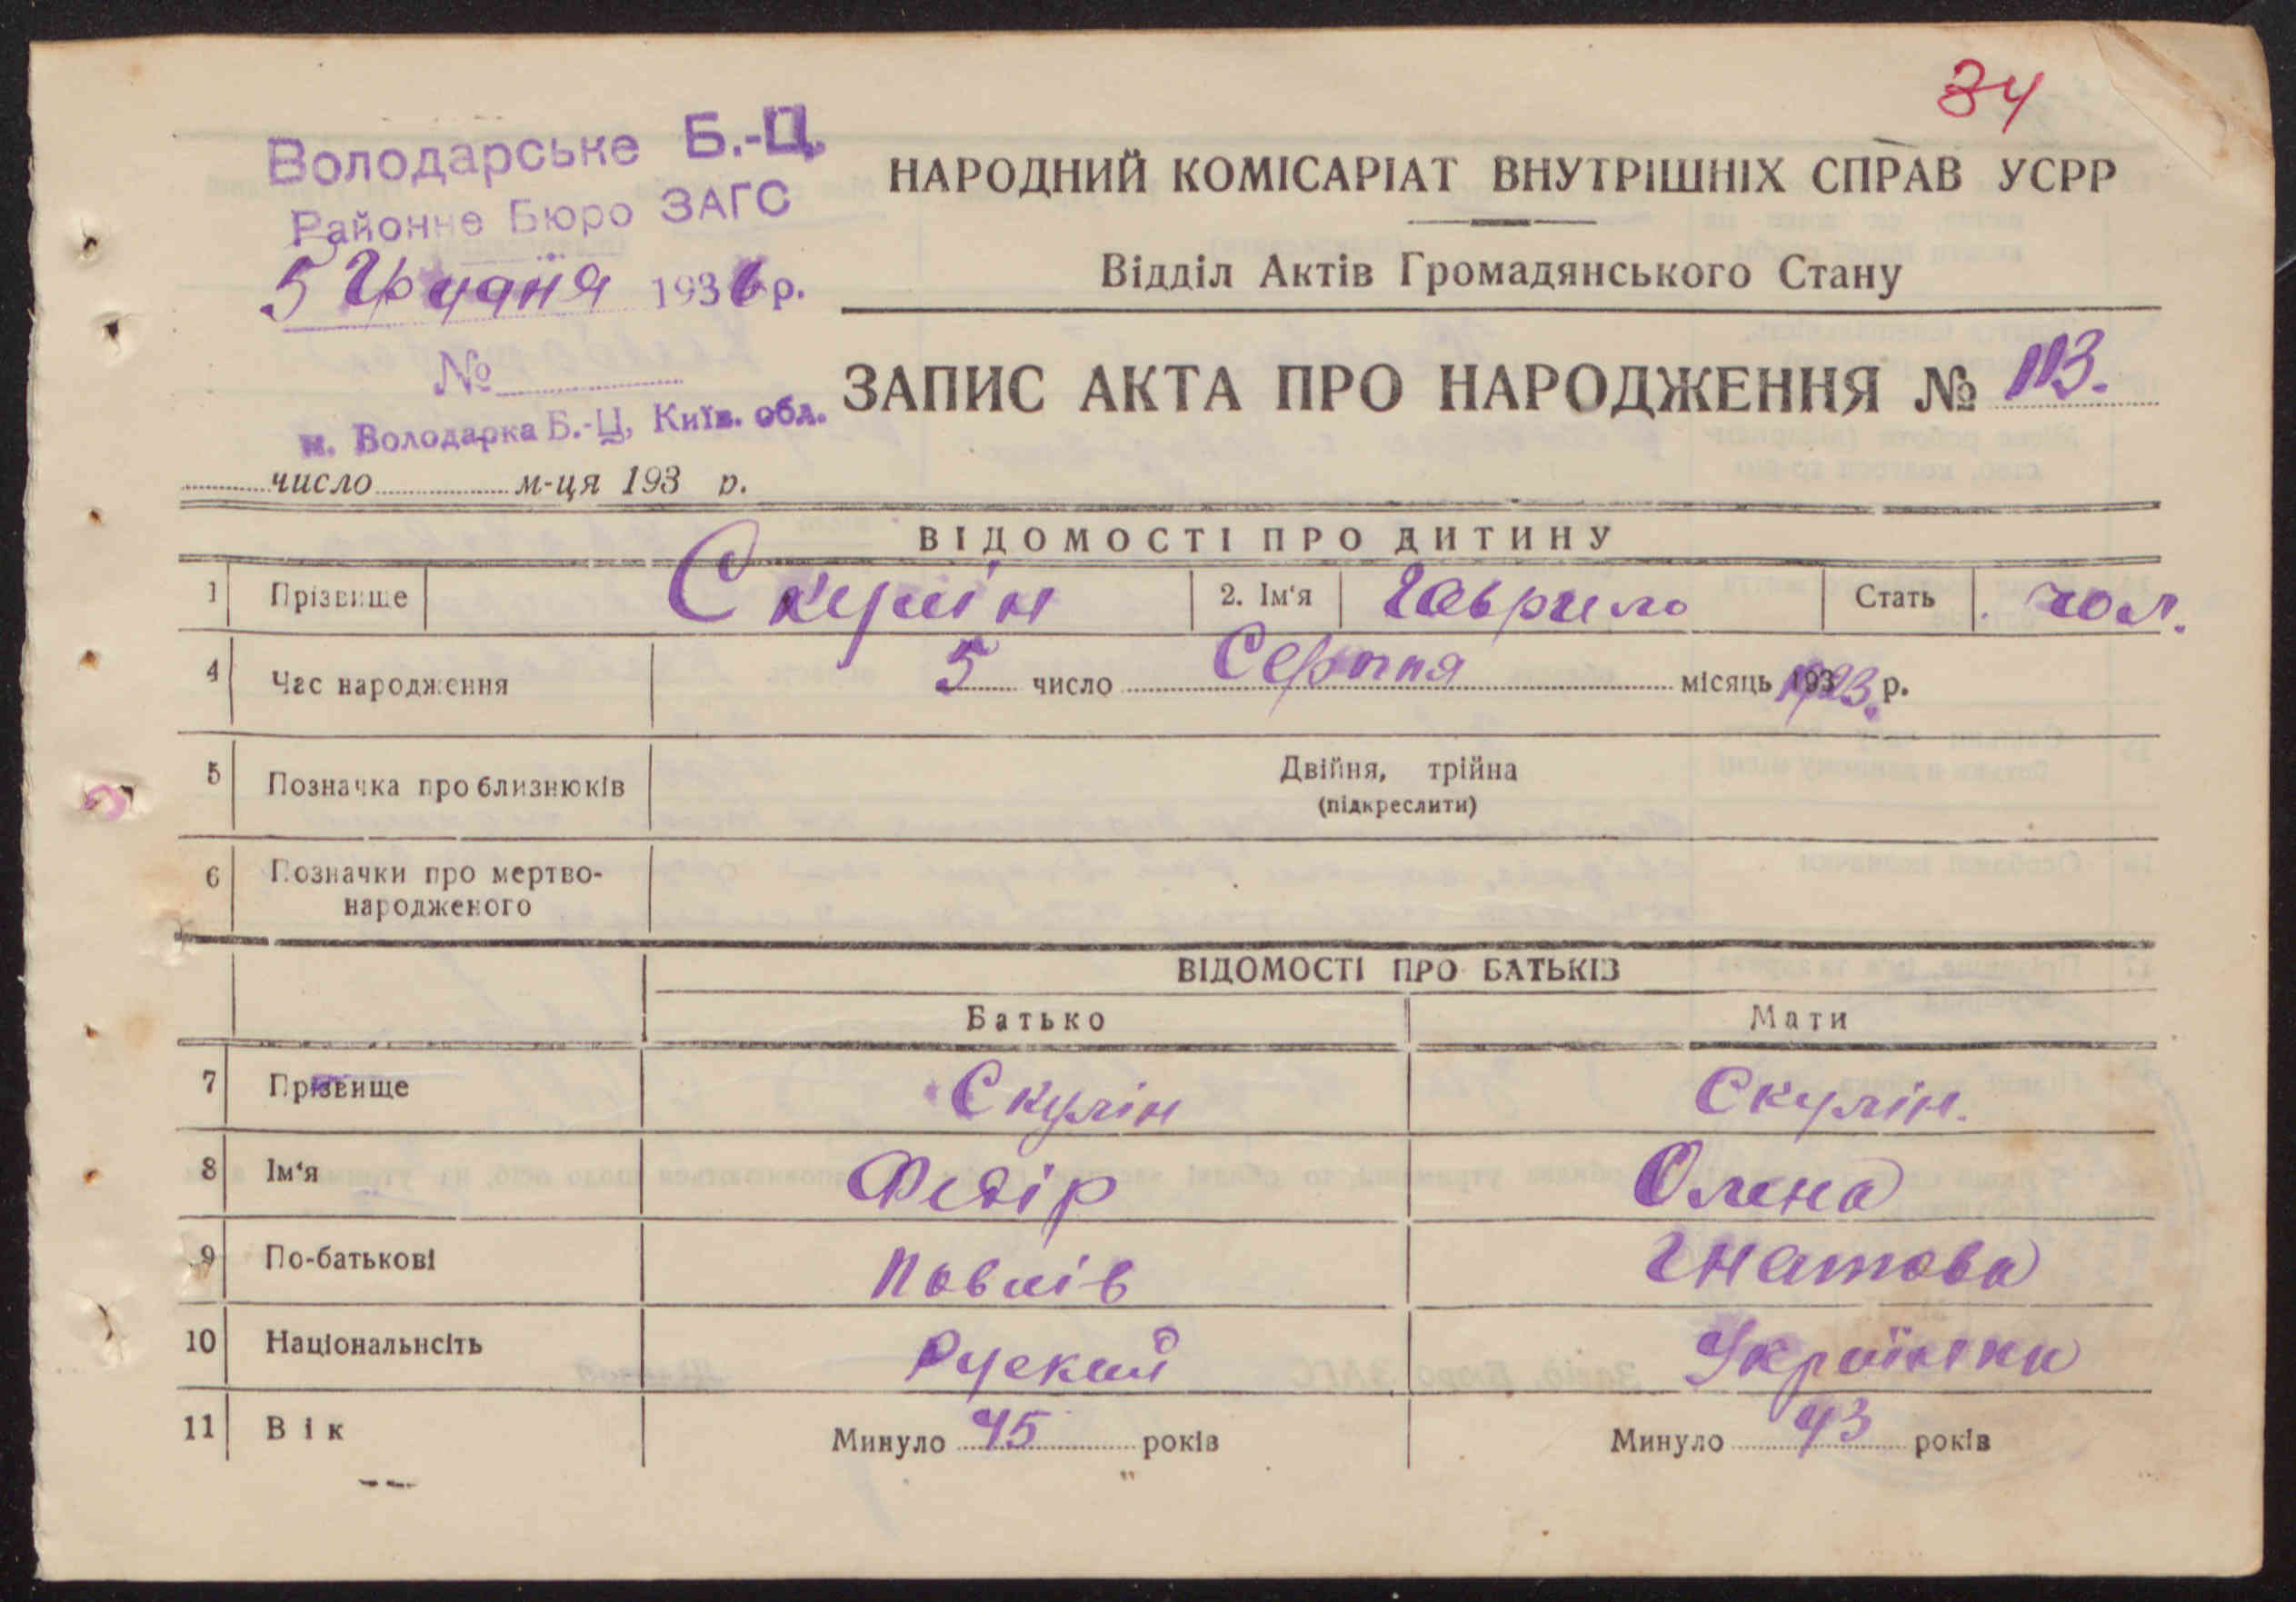 34
Володарське Б.-Ц.
Районне Бюро ЗАГС
5 Грудня 1936 р.
№
м. Володарка Б.-Ц, Київ. обл.
число м-ця 193 р.
НАРОДНИЙ КОМІСАРІАТ ВНУТРІШНІХ СПРАВ УСРР
Відділ Актів Громадянського Стану
ЗАПИС АКТА ПРО НАРОДЖЕННЯ № 113.
ВІДОМОСТІ ПРО ДИТИНУ
1 Прізвище Скулін 2. Ім'я Гаврило Стать чол.
4 Час народження 5 число Серпня місяць 1923 р.
5 Позначка про близнюків Двійня, трійна
(підкреслити)
6 Позначки про мертво-
народженого
ВІДОМОСТІ ПРО БАТЬКІВ
Батько Мати
7 Прізвище Скулін Скулін.
8 Ім'я Федір Олена
9 По-батькові Павлів Гнатова
10 Національнсіть Руский Українка
11 Вік Минуло 45 років Минуло 43 років